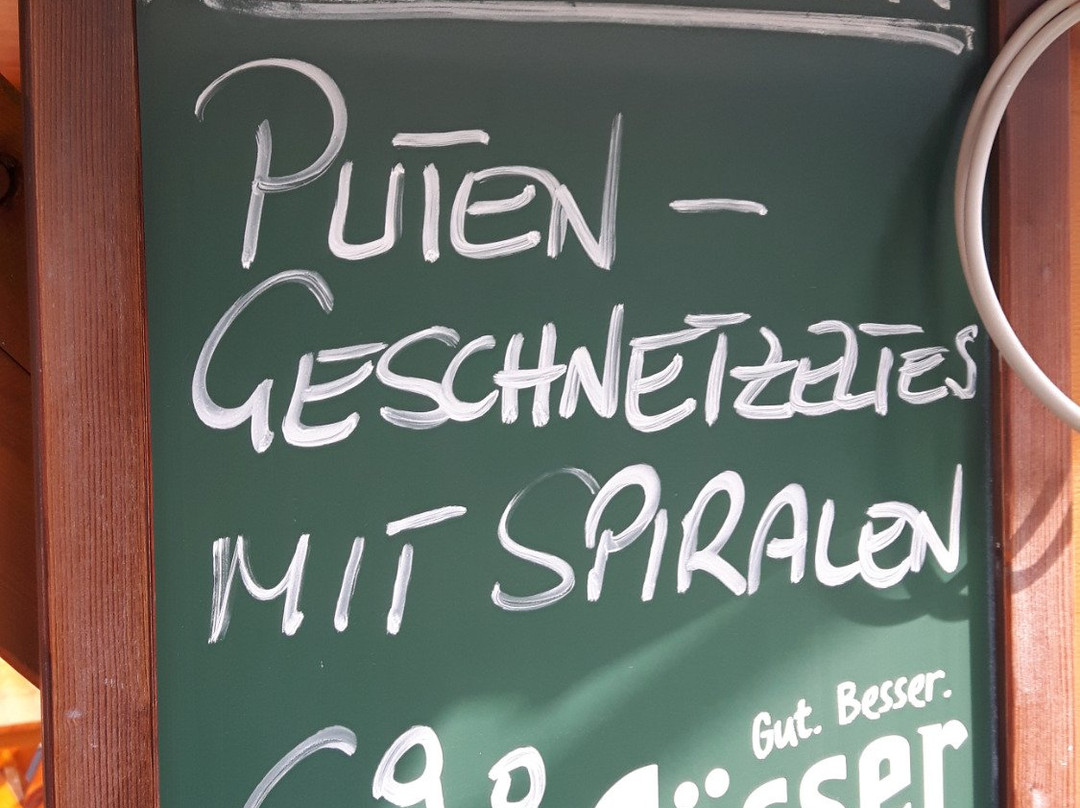 PUTEN –
GESCHNETZELTES
MIT SPIRALEN
Gut. Besser.
Gösser